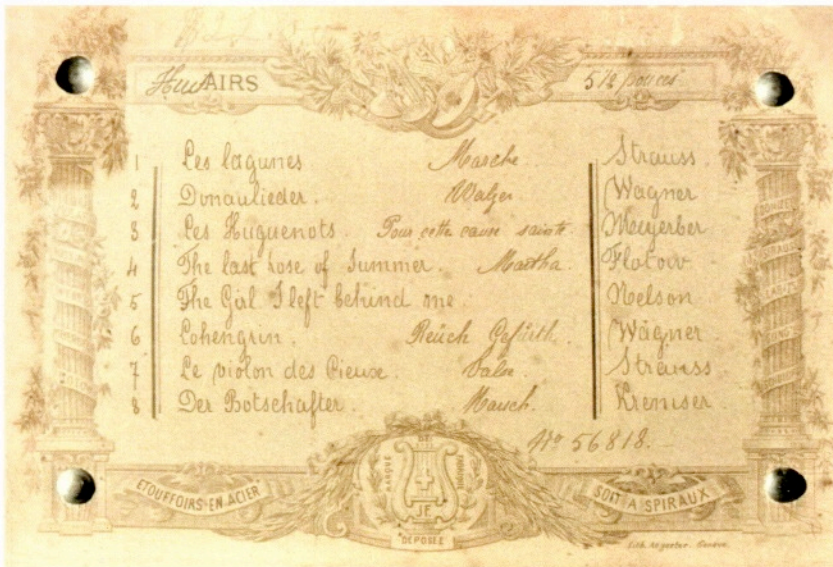 Huit AIRS 5 1/2 pouces
1 Les lagunes Marche Strauss.
2 Donaulieder. Walzer Wagner
3 Les Huguenots. Pour cette cause sainte. Meyerber
4 The last rose of Summer. Martha. Flotow
5 The Girl I left behind me. Nelson
6 Lohengrin. Wagner.
7 Le violon des Cieux. Strauss
8 Der Botschafter. Kremser
No 56818.
ETOUFFOIRS-EN ACIER
MARQUE DE FABRIQUE
J.F.
DÉPOSÉE
SOIT A SPIRAUX
Genève.